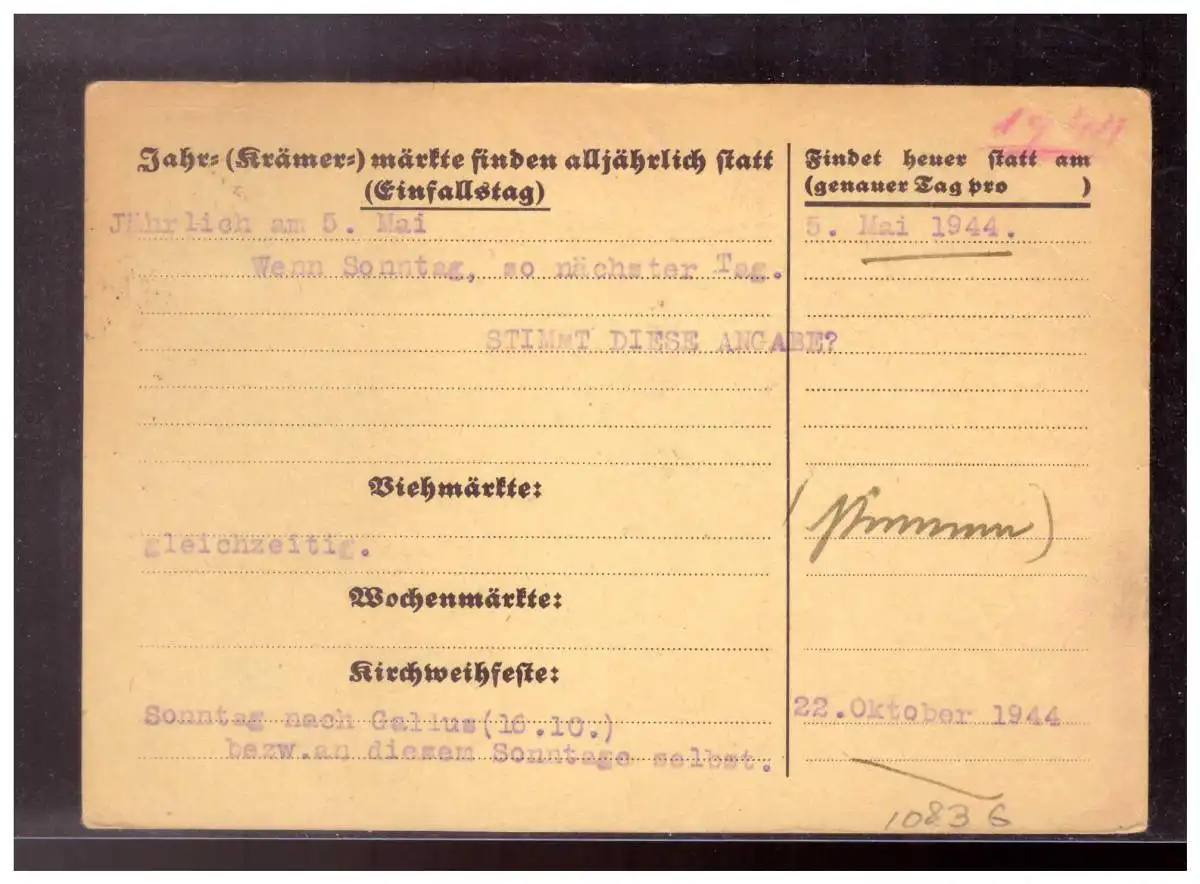 Jahr= (Krämer=) märkte finden alljährlich statt
(Einfallstag)
Jährlich am 5. Mai
Wenn Sonntag, so nächster Tag.
STIMMT DIESE ANGABE?
Viehmärkte:
gleichzeitig.
Wochenmärkte:
Kirchweihfeste:
Sonntag nach Gallus(16.10.)
bezw.an diesem Sonntage selbst.
Findet heuer statt am
(genauer Tag pro )
5. Mai 1944.
22.Oktober 1944
10836